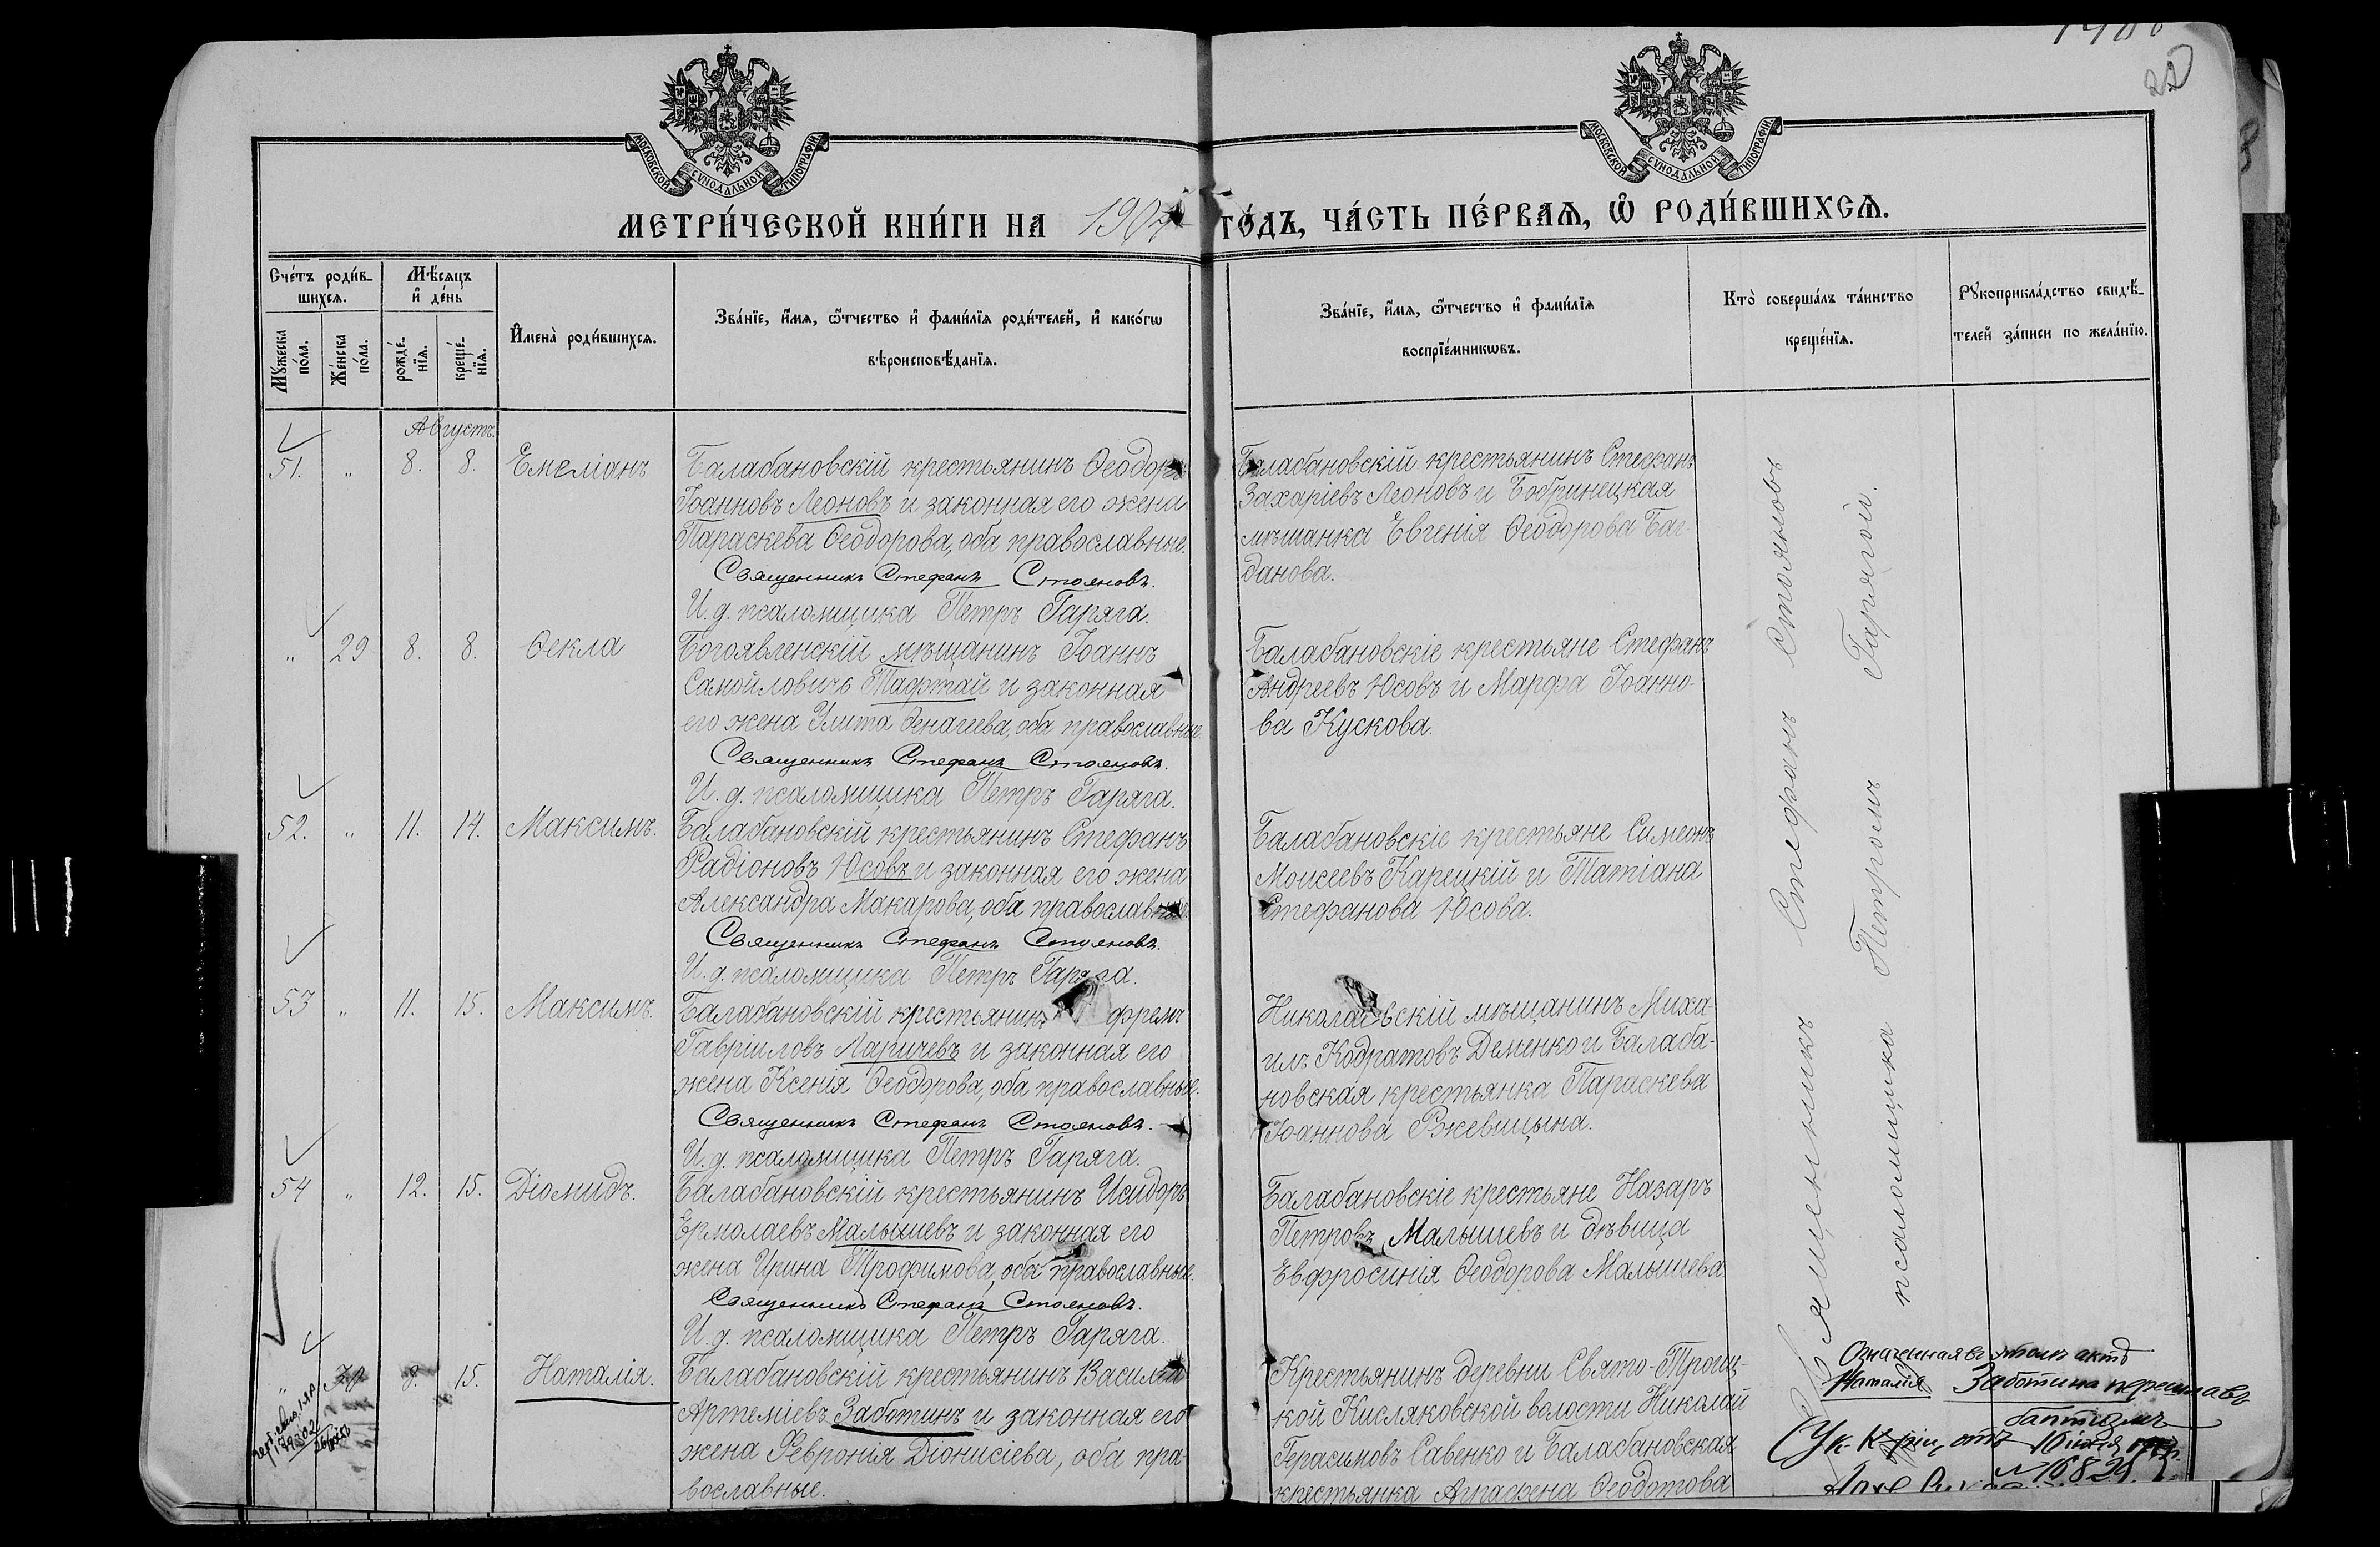 20
МОСКОВСКОЙ СУНОДАЛЬНОЙ ТИПОГРАФІИ
МОСКОВСКОЙ СУНОДАЛЬНОЙ ТИПОГРАФІИ
МЕТРИ́ЧЕСКОЙ КНИ́ГИ НА 1907 ГО́ДЪ, ЧА́СТЬ ПЕ́РВАѦ, Ѽ РОДИ́ВШИХСѦ.
Сче́тъ роди́в-
шихсѧ.
Мꙋжеска
по́ла.
Же́нска
по́ла.
Мѣ́сѧцъ
и҆ де́нь
рожде́-
нїѧ.
креще́-
нїѧ.
И҆мена̀ роди́вшихсѧ.
Зва́нїе, и҆́мѧ, ѻ҆́тчество и҆ фами́лїѧ роди́телей, и҆ како́гѡ
вѣроисповѣ́данїѧ.
Зва́нїе, и҆́мѧ, ѻ҆́тчество и҆ фами́лїѧ
воспрїе́мникѡвъ.
Кто̀ соверша́лъ та́инство
креще́нїѧ.
Рꙋкоприкла́дство свидѣ́-
телей за́писи по жела́нїю.
Августъ.
51. " 8. 8. Емеліанъ
Балабановскій крестьянинъ Ѳеодоръ
Іоанновъ Леоновъ и законная его жена
Параскева Ѳеодорова, оба православные.
Священникъ Стефанъ Стояновъ.
И. д. псаломщика Петръ Гаряга.
Балабановскій крестьянинъ Стефанъ
Захаріевъ Леоновъ и Бобринецкая
мѣщанка Евгенія Ѳеодорова Баг-
данова.
" 29 8. 8. Ѳекла
Богоявленскій мѣщанинъ Іоаннъ
Самойловичъ Тафтай и законная
его жена Улита Ѳеначева, оба православные.
Священникъ Стефанъ Стояновъ.
И. д. псаломщика Петръ Гаряга.
Балабановскіе крестьяне Стефанъ
Андреевъ Юсовъ и Марфа Іоанно-
ва Кускова.
52. " 11. 14. Максимъ.
Балабановскій крестьянинъ Стефанъ
Радіоновъ Юсовъ и законная его жена
Александра Макарова, оба православные.
Священникъ Стефанъ Стояновъ.
И. д. псаломщика Петръ Гаряга.
Балабановскіе крестьяне Симеонъ
Моисеевъ Карецкій и Татіана
Стефанова Юсова.
53 " 11. 15. Максимъ.
Балабановскій крестьянинъ фремъ
Гавриловъ Ларичевъ и законная его
жена Ксенія Ѳеодорова, оба православные.
Священникъ Стефанъ Стояновъ.
И. д. псаломщика Петръ Гаряга.
Николаевскій мѣщанинъ Миха-
илъ Кодратовъ Деменко и Балаба-
новская крестьянка Параскева
Іоаннова Ржевицына.
54 " 12. 15. Діомидъ.
Балабановскій крестьянинъ Исидоръ
Ермолаевъ Малышевъ и законная его
жена Ирина Трофимова, оба православные.
Священникъ Стефанъ Стояновъ.
И. д. псаломщика Петръ Гаряга.
Балабановскіе крестьяне Назаръ
Петровъ Малышевъ и дѣвица
Евфросинія Ѳеодорова Малышева.
" 8. 15. Наталія.
Балабановскій крестьянинъ Василій
Артеміевъ Заботинъ и законная его
жена Февронія Діонисіева, оба пра-
вославные.
Крестьянинъ деревни Свято-Троиц-
кой Кисляковской волости Николай
Герасимовъ Савенко и Балабановская
крестьянка Агрипена Ѳеодотова
Священникъ Стефанъ Стояновъ
псаломщика Петромъ Гарягой.
Означенная въ этомъ актѣ
Наталія Заботина
Ук. К-ріи, отъ 16 іюля
№ 16829.